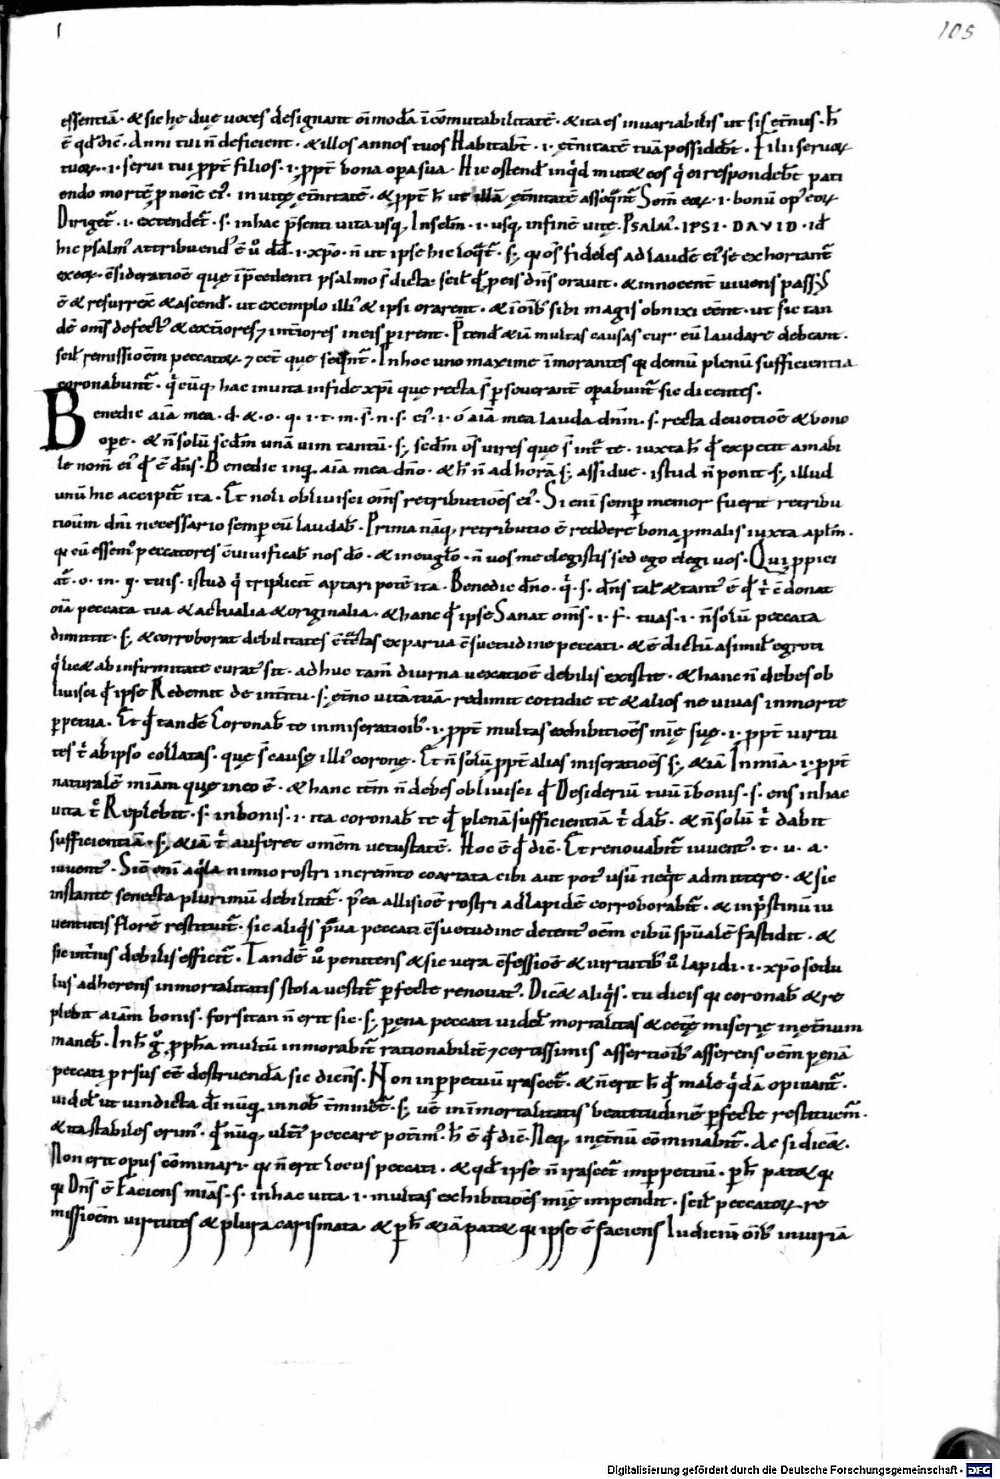 105
essentiā · & sic hę duę uoces designant om̄imodā īcōmutabilitatē · & ita es inuariabilis ut sis et̄nus · h̄
ē qd̄ dic̄ · Anni tui n̄ deficient · & illos annos tuos Habitab̄t · i · et̄nitatē tuā possideb̄t · Filii seruoꝝ
tuoꝝ · i · serui tui ꝓpt̄ filios · i · ꝓpt̄ bona oꝑa sua · Hic ostend̄
endo mortē ꝓ noīe ei᷒ · in uitę et̄nitatē · & ꝓpt̄ h̄ ut illā et̄nitatē asseq̄nt᷒ Sem̄ eoꝝ · i · bonū op᷒ eoꝝ
Diriget᷒ · i · extendet᷒ · s · in hac p̄senti uita usq; In sęlm̄ · i · usq; in finē uitę · PSALM᷒ · IPSI · DAVID · id̄
hic psalm᷒ attribuend᷒ ē u͛ dd̄ · i · xp̄o · n̄ ut ipse hic loq̄t᷒ · s; q̄ os̄ fideles ad laudē ei᷒ se exhortant᷒
ē & resurrex̄ & ascend̄ · ut exemplo illi᷒ & ipsi orarent · & ī oīb; sibi magis obnixi eēnt · ut sic tan
dē om̄s defect᷒ & ext̄iores ⁊ int̄iores in eis ꝑirent · P̄tend̄ & iā multas causas cur eū laudare debeant ·
scil̄ remissioēm peccatoꝝ ⁊ cet̄ que seq̄nt᷒ · In hoc uno maxime īmorantes qͥ demū plenū sufficientia
coronabunt᷒ · q̄cūq; hac in uita in fide xp̄i que recta s̄ ꝑseuerantē oꝑabunt᷒ sic dicentes ·
Benedic aīa mea · d · & · o · q · i · t · m · s̄ · n · s · ei᷒ · i · o aīa mea lauda dn̄m · s · recta deuotioē & bono
ope · & n̄ solū scd̄m unā uim tantū · s; scd̄m os̄ uires que s̄ int᷒ te · iuxta h̄ qđ expetit amabi
le nom̄ ei᷒ qđ ē dn̄s · Benedic inq; aīa mea dn̄o · & h̄ n̄ ad horā s; assidue · istud n̄ ponit s; illud
unū hic accipit᷒ ita · Et noli obliuisci om̄s retributiōes ei᷒ · Si enī semꝑ memor fuerit retribu
tionum dn̄i necessario semꝑ eū laudab̄ · Prima nāq; retributio ē reddere bona ꝓ malis iuxta apl̄m ·
qͥ cū essem᷒ peccatores cōuiuificab̄ nos do · & in euglo · n̄ uos me elegistis sed ego elegi uos · Qui ꝓpici
at᷒ · o · in · q · tuis · istud q̄ triplicit̄ aptari potē ita · Benedic dn̄o · q̄ · s · dn̄s tal̄ & tant᷒ ē qđ t̄ cōdonat
oīa peccata tua & actualia & originalia · & hanc qđ ipse Sanat om̄s · i · f · tuas · i · n̄ solū peccata
dimittit · s; & corroborat debilitates
qͥ licet ab infirmitate curat᷒ sit · adhuc tam̄ diurna uexatioē debilis existit · & hanc n̄ debes ob
liuisci qđ ipse Redemit de int̄itu · s · et̄no uitā tuā · redimit cotidie te & alios ne uiuas in morte
ꝑpetua · Et qđ tandē Coronab̄ te in miseratioīb; · i · ꝓpt̄ multas exhibitioēs mīę suę · i · ꝓpt̄ uirtu
tes t̄ ab ipso collatas · que s̄ causę illi᷒ coronę · Et n̄ solū ꝓpt̄ alias miseratioēs s; & iā In mīa · i · ꝓpt̄
naturalē miām que in eo ē · & hanc tēm n̄ debes obliuisci qđ Desideriū tuū ī bonis · s · ens in hac
uita t̄ Replebit · s · in bonis · i · ita coronab̄ te qđ plenā sufficientiā t̄ dab̄ · & n̄ solū t̄ dabit
sufficientiā · s; & iā t̄ auferet omēm uetustatē · Hoc ē qđ dic̄ · Et renouabit᷒ iuuent᷒ · t · u · a ·
iuuent᷒ · Sic̄ enī aq̄la nimio rostri increm̄to coartata cibi aut pot᷒ usū neq̄t admittere · & sic
instante senecta plurimū debilitat᷒ · p᷒ea allisioē rostri ad lapidē corroborabit᷒ · & in p̄stinū iu
uentutis florē restituit᷒ · sic aliq̄s praua peccati cōsuetudine detent᷒ oēm cibū spūalē fastidit · &
sic int̄ius debilis efficit᷒ · Tandē u͛ penitens & sic uera cōfessioē & uirtutib; u͛ lapidi · i · xp̄o sedu
lus adherens inmortalitatis stola uestit᷒ ꝑfecte renouat᷒ · Dicet aliq̄s · tu dicis qͥ coronab̄ & re
plebit aīam bonis · forsitan n̄ erit sic · s; pęna peccati uidel̄ mortalitas & cetę miserię in et̄num
maneb̄ · In h̄ g͛ ꝓph̄a multū inmorabit᷒ rationabilit̄ ⁊ certissimis assertioīb; asserens oēm pęnā
peccati ꝓrsus eē destruendā sic dicens · Non in ꝑpetuū irascet᷒ · & n̄ erit h̄ qđ male q̄dā opinant᷒ ·
uidel̄ ut uindicta dī nūq; in nob̄ tmīnet᷒ · s; ue᷒ in īmortalitatis beatitudinē ꝑfecte restituem᷒ ·
& ita stabiles erim᷒ · qđ nūq; ult̄i᷒ peccare potim᷒ · h̄ ē qđ dic̄ · Neq; in et̄nū cōminabit᷒ · Ac si dicet ·
Non erit opus cōminari · qͥ n̄ erit locus peccati · & qd̄ ipse n̄ irascet᷒ in ꝑpetuū · ꝑ h̄ patet qͥ
qͥ Dn̄s ē Faciens miās · s · in hac uita · i · multas exhibitioēs mīę impendit · scil̄ peccatoꝝ re
missioēm uirtutes & plura carismata & ꝑ h̄ & iā patet qͥ ipse ē faciens Iudiciū oīb; iniuriā
Digitalisierung gefördert durch die Deutsche Forschungsgemeinschaft · DFG